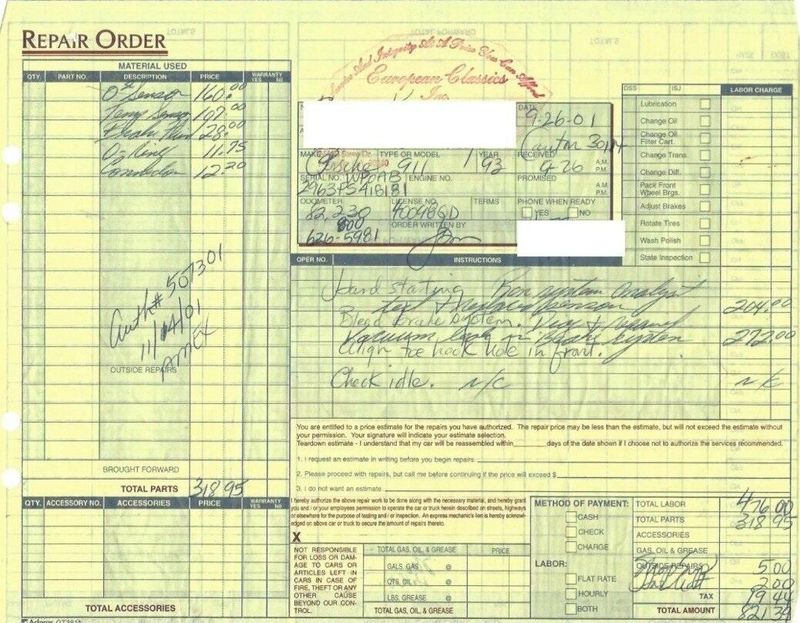 REPAIR ORDER
MATERIAL USED
QTY. PART NO. DESCRIPTION PRICE WARRANTY YES NO
O2 Sensor 160.00
Temp Sensor 107.00
Brake Fluid 28.00
O-Ring 11.75
12.20
Auth# 507301
11/04/01
AMEX
OUTSIDE REPAIRS
BROUGHT FORWARD
TOTAL PARTS 318.95
QTY. ACCESSORY NO. ACCESSORIES PRICE WARRANTY YES NO
TOTAL ACCESSORIES
Service And Integrity At A Price You Can Afford
European Classics
Inc.
DATE
9-26-01
MAKE TYPE OR MODEL YEAR RECEIVED A.M. P.M.
Porsche 911 1993 9-26
SERIAL NO. ENGINE NO. PROMISED A.M. P.M.
WP0AB
2963PS418181
ODOMETER LICENSE NO. TERMS PHONE WHEN READY
82,230 YES NO
800 ORDER WRITTEN BY
626-5981
OPER NO. INSTRUCTIONS
hard starting. Run system analyst
test & replaced sensor 204.00
Bleed brake system. Diag & Repair
Vacuum leak in Brake system 272.00
Align toe hook hole in front.
Check idle. N/C N/C
DSS ISJ LABOR CHARGE
Lubrication
Change Oil
Change Oil Filter Cart.
Change Trans.
Change Diff.
Pack Front Wheel Brgs.
Adjust Brakes
Rotate Tires
Wash Polish
State Inspection
You are entitled to a price estimate for the repairs you have authorized. The repair price may be less than the estimate, but will not exceed the estimate without
your permission. Your signature will indicate your estimate selection.
Teardown estimate - I understand that my car will be reassembled within ____ days of the date shown if I choose not to authorize the services recommended.
1. I request an estimate in writing before you begin repairs
2. Please proceed with repairs, but call me before continuing if the price will exceed $
3. I do not want an estimate
I hereby authorize the above repair work to be done along with the necessary material, and hereby grant
you and / or your employees permission to operate the car or truck herein described on streets, highways
or elsewhere for the purpose of testing and / or inspection. An express mechanic's lien is hereby acknowl-
edged on above car or truck to secure the amount of repairs thereto.
X
NOT RESPONSIBLE
FOR LOSS OR DAM-
AGE TO CARS OR
ARTICLES LEFT IN
CARS IN CASE OF
FIRE, THEFT OR ANY
OTHER CAUSE
BEYOND OUR CON-
TROL.
TOTAL GAS, OIL & GREASE PRICE
GALS. GAS @
QTS. OIL @
LBS. GREASE @
TOTAL GAS, OIL & GREASE
METHOD OF PAYMENT:
CASH
CHECK
CHARGE
LABOR:
FLAT RATE
HOURLY
BOTH
TOTAL LABOR 476.00
TOTAL PARTS 318.95
ACCESSORIES
GAS, OIL & GREASE
OUTSIDE REPAIRS 5.00
2.00
TAX 19.44
TOTAL AMOUNT 821.39
Adams